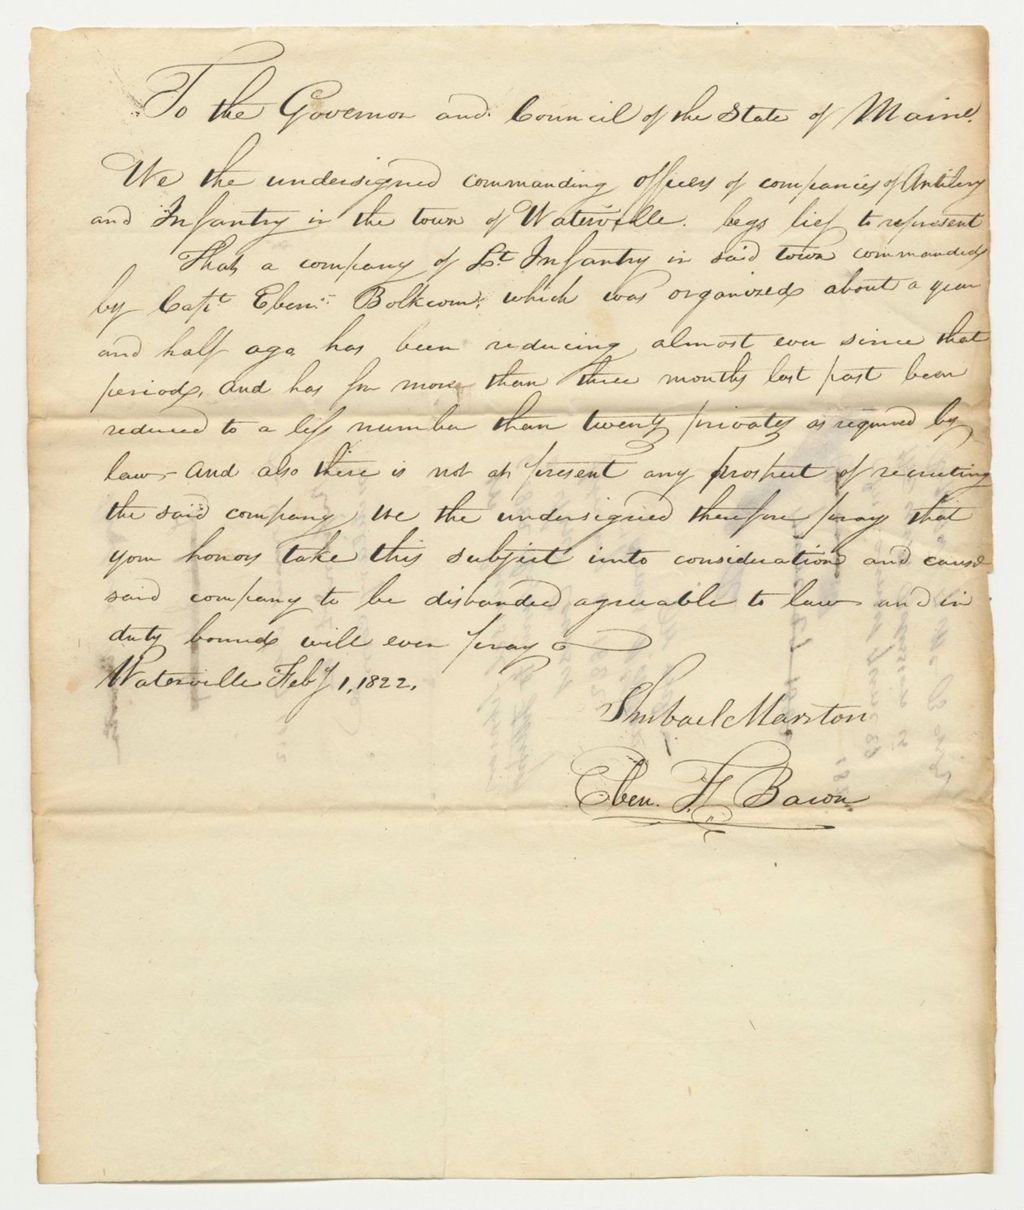 To the Governor and Council of the State of Maine.
We the undersigned commanding officers of companies of Artillery
and Infantry in the town of Waterville. begs lief to represent
That a company of Lt. Infantry in said town commanded
by Capt. Eben. Bolkcom, which was organized about a year
and half ago has been reducing almost ever since that
period, and has for more than three months last past been
reduced to a less number than twenty privates as required by
law and also there is not at present any prospect of recruiting
the said company We the undersigned therefore pray that
your honors take this subject into consideration and cause
said company to be disbanded agreeable to law and in
duty bound will ever pray
Waterville Feby 1, 1822.
Shubael Marston
Eben. F. Bacon